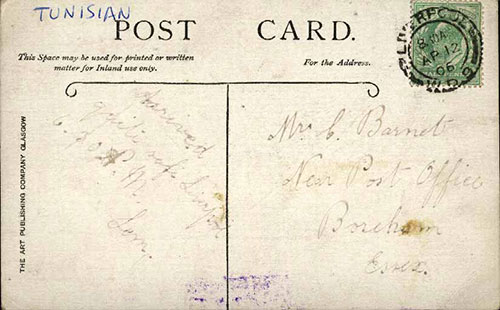 TUNISIAN
POST CARD.
This Space may be used for printed or written
matter for Inland use only.
For the Address.
LIVERPOOL
AP 12
06
Arrived
quite safe
6.30 P.M.
Mrs C. Barnet
Near Post Office
Boreham
Essex.
THE ART PUBLISHING COMPANY GLASGOW